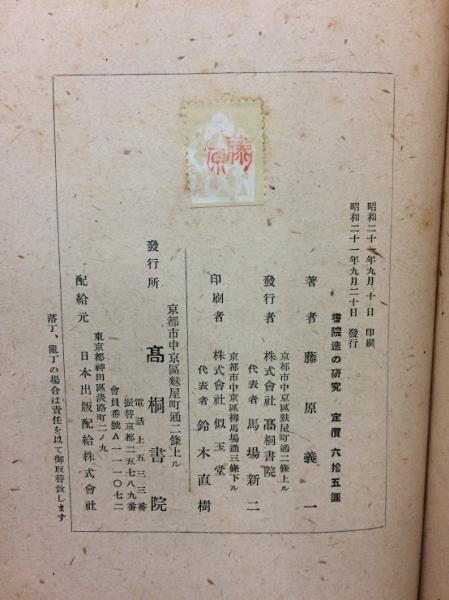 昭和二十一年九月十日 印刷
昭和二十一年九月二十日 發行
書院造の研究 定價 六拾五圓
著者 藤原義一
京都市中京區麩屋町通二條上ル
發行者 株式會社 髙桐書院
代表者 馬場新二
京都市中京區柳馬場通三條下ル
印刷者 株式會社 似玉堂
代表者 鈴木直樹
京都市中京區麩屋町通二條上ル
發行所 髙桐書院
電話 上五三三番
振替京都二五七八九番
會員番號A一一一〇七二
東京都神田區淡路町二ノ九
配給元 日本出版配給株式會社
落丁、亂丁の場合は責任を以て御取替致します
藤原